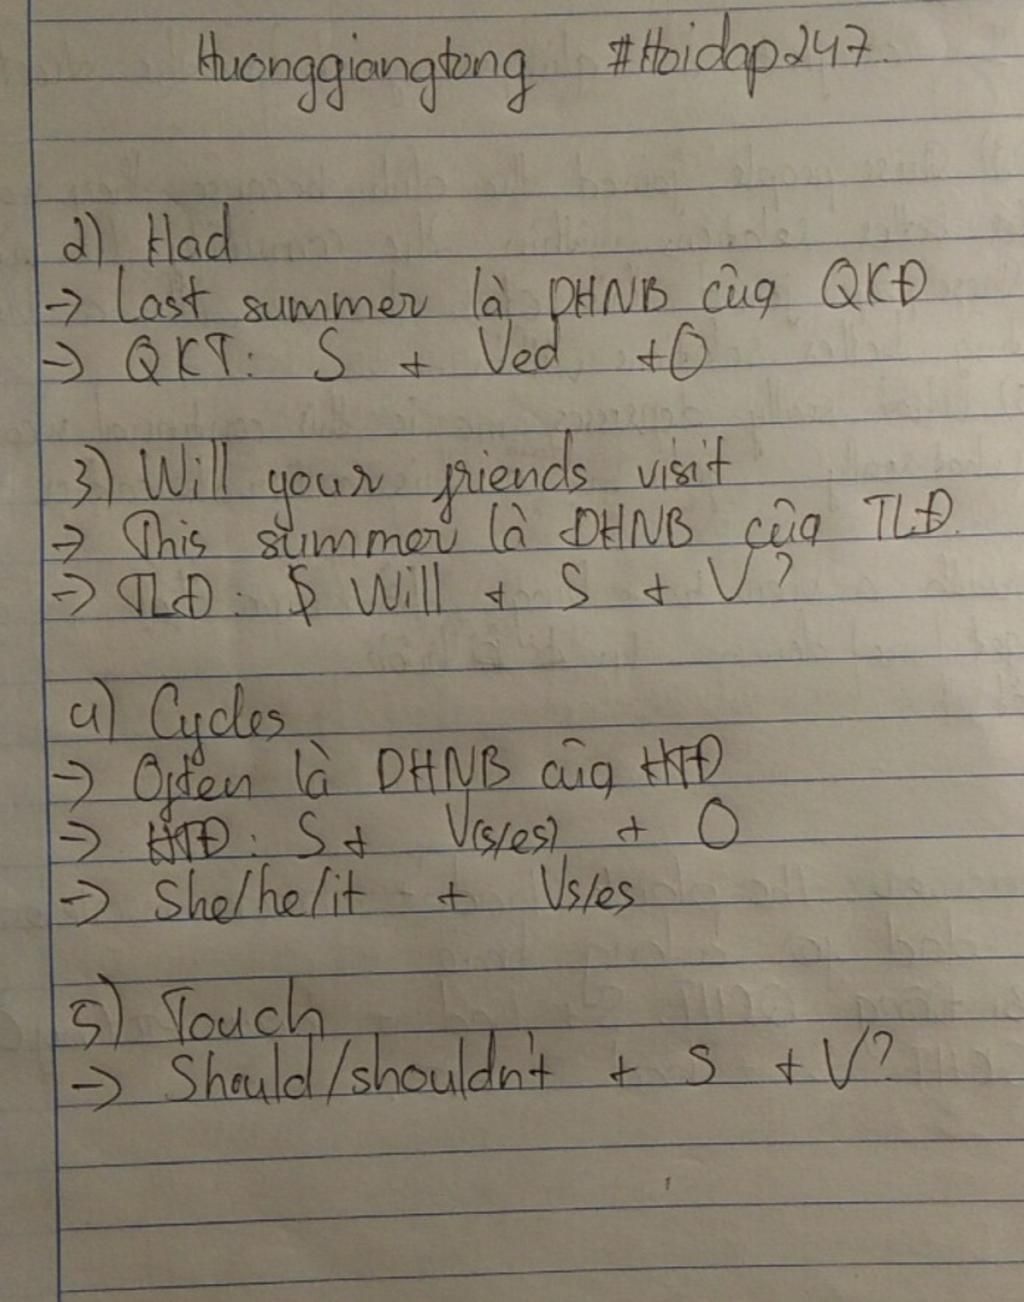 Huonggiangtong #Hoidap247.
2) Had
-> Last summer là DHNB của QKĐ
-> QKT: S + Ved + O
3) Will your friends visit
-> This summer là DHNB của TLĐ.
-> TLĐ: Will + S + V?
4) Cycles
-> Often là DHNB của HTĐ
-> HTĐ: S + V(s/es) + O
-> She/he/it + Vs/es
5) Touch
-> Should/shouldn't + S + V?